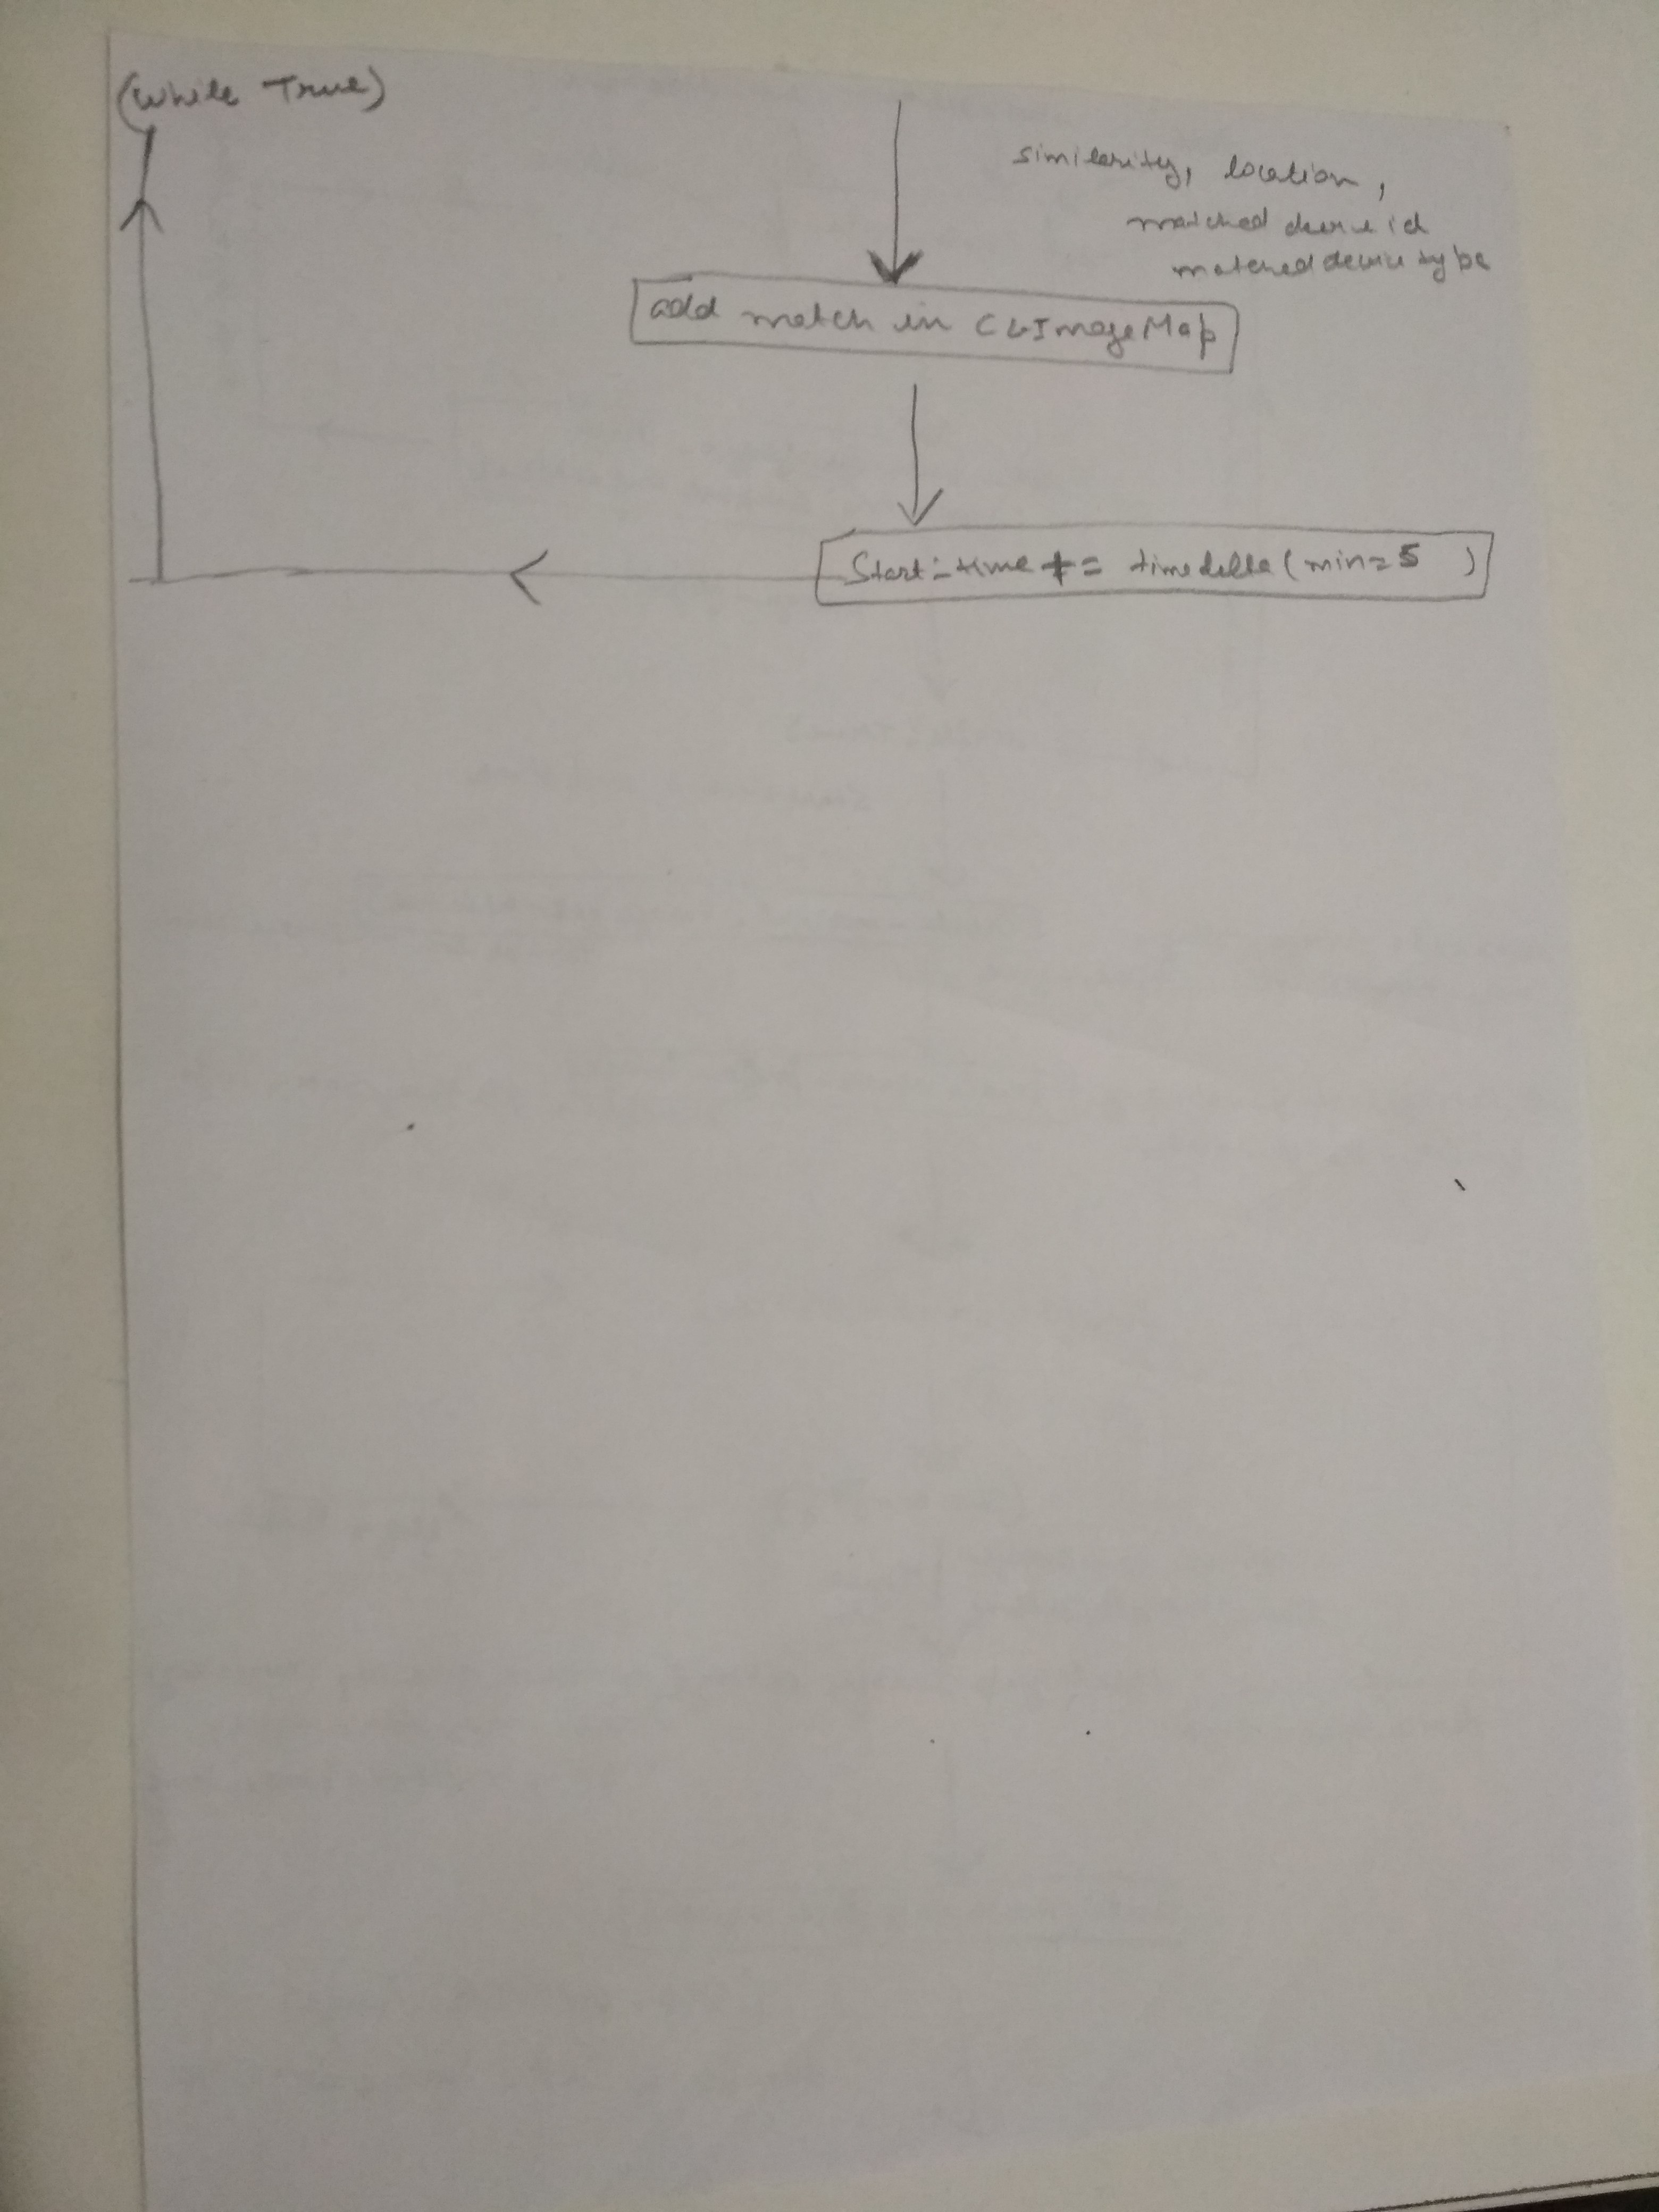 (While True)
similarity, location,
matched device id
matched device type
add match in CGImageMap
Start_time += timedelta(min=5 )